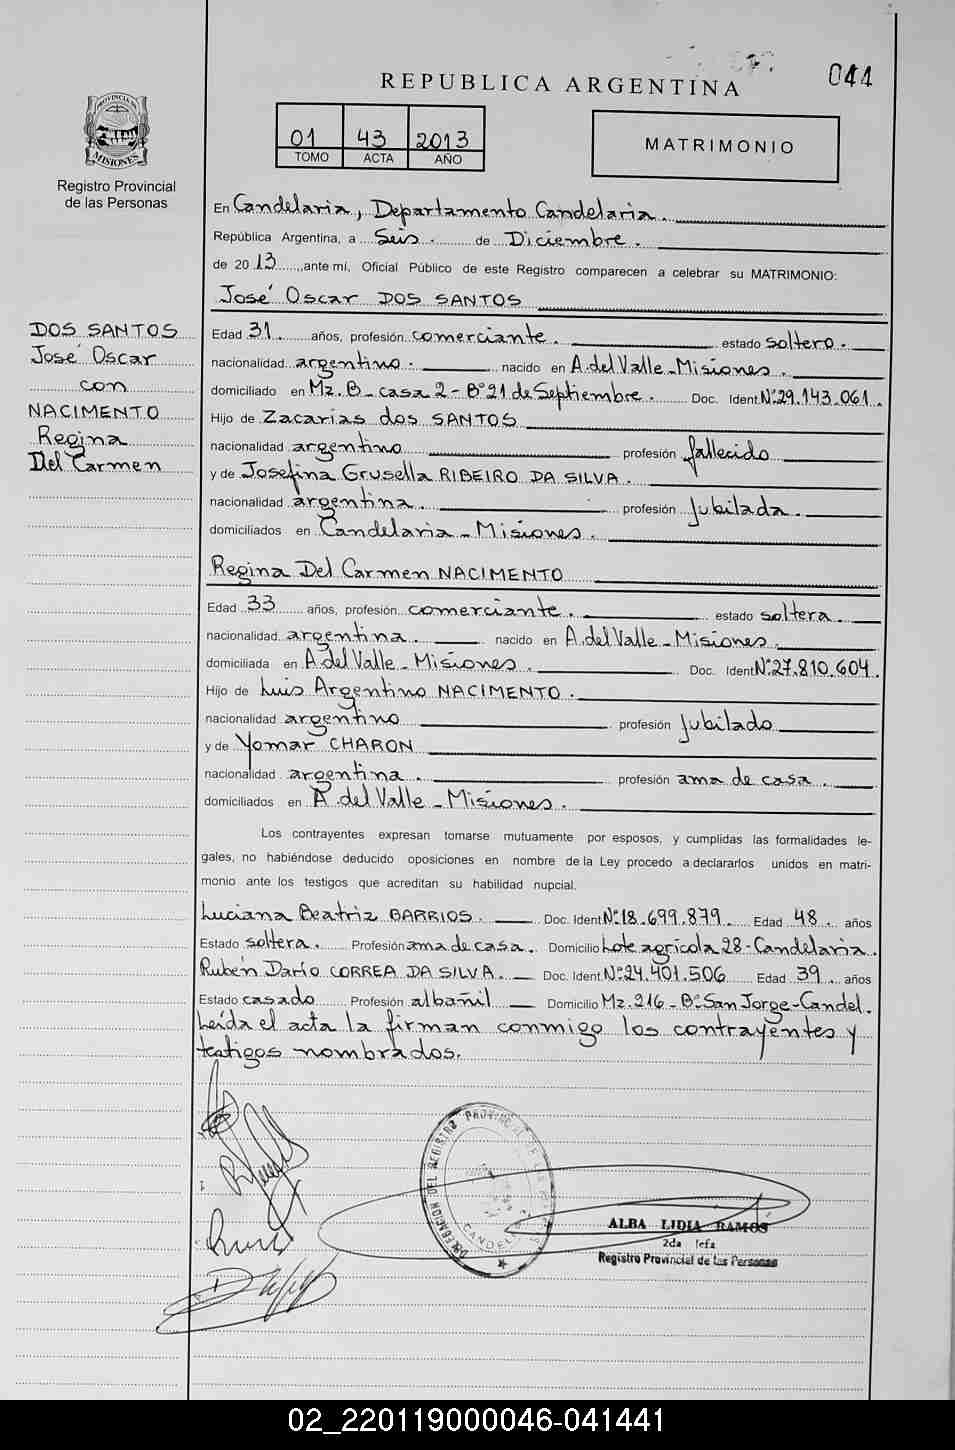 044
REPUBLICA ARGENTINA
PROVINCIA DE
MISIONES
Registro Provincial
de las Personas
01 43 2013
TOMO ACTA AÑO
MATRIMONIO
En Candelaria, Departamento Candelaria.
República Argentina, a Seis. de Diciembre.
de 2013, ante mí, Oficial Público de este Registro comparecen a celebrar su MATRIMONIO:
José Oscar DOS SANTOS
DOS SANTOS
José Oscar
con
NACIMENTO
Regina
Del Carmen
Edad 31. años, profesión comerciante. estado soltero.
nacionalidad argentino. nacido en A. del Valle - Misiones.
domiciliado en Mz. B - casa 2 - Bº 21 de Septiembre. Doc. Ident Nº 29.143.061.
Hijo de Zacarias dos SANTOS
nacionalidad argentino profesión fallecido
y de Josefina Grusella RIBEIRO DA SILVA.
nacionalidad argentina. profesión Jubilada.
domiciliados en Candelaria - Misiones.
Regina Del Carmen NACIMENTO
Edad 33 años, profesión comerciante. estado soltera
nacionalidad argentina. nacido en A. del Valle - Misiones.
domiciliada en A del Valle - Misiones. Doc. Ident Nº 27.810.604.
Hijo de Luis Argentino NACIMENTO.
nacionalidad argentino profesión Jubilado
y de Yomar CHARON
nacionalidad argentina. profesión ama de casa.
domiciliados en A. del Valle - Misiones.
Los contrayentes expresan tomarse mutuamente por esposos, y cumplidas las formalidades le-
gales, no habiéndose deducido oposiciones en nombre de la Ley procedo a declararlos unidos en matri-
monio ante los testigos que acreditan su habilidad nupcial.
Luciana Beatriz BARRIOS. Doc. Ident Nº 18.699.879. Edad 48. años
Estado soltera. Profesión ama de casa. Domicilio Lote agrícola 28 - Candelaria.
Rubén Darío CORREA DA SILVA. Doc. Ident Nº 24.401.506 Edad 39. años
Estado casado Profesión albañil Domicilio Mz. 216 - Bº San Jorge - Candel.
Leída el acta la firman conmigo los contrayentes y
testigos nombrados.
DELEGACION DEL REGISTRO PROVINCIAL DE LAS
CANDEL
ALBA LIDIA RAMOS
2da Jefa
Registro Provincial de las Personas
02_220119000046-041441